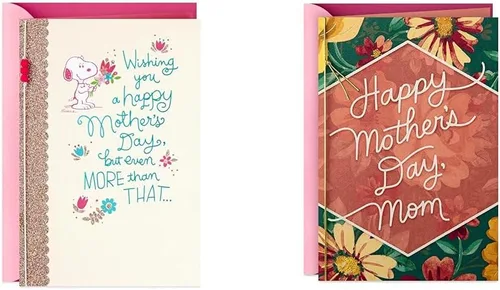 Wishing
you
a happy
Mother's
Day,
but even
MORE than
THAT...
Happy
Mother's
Day,
Mom